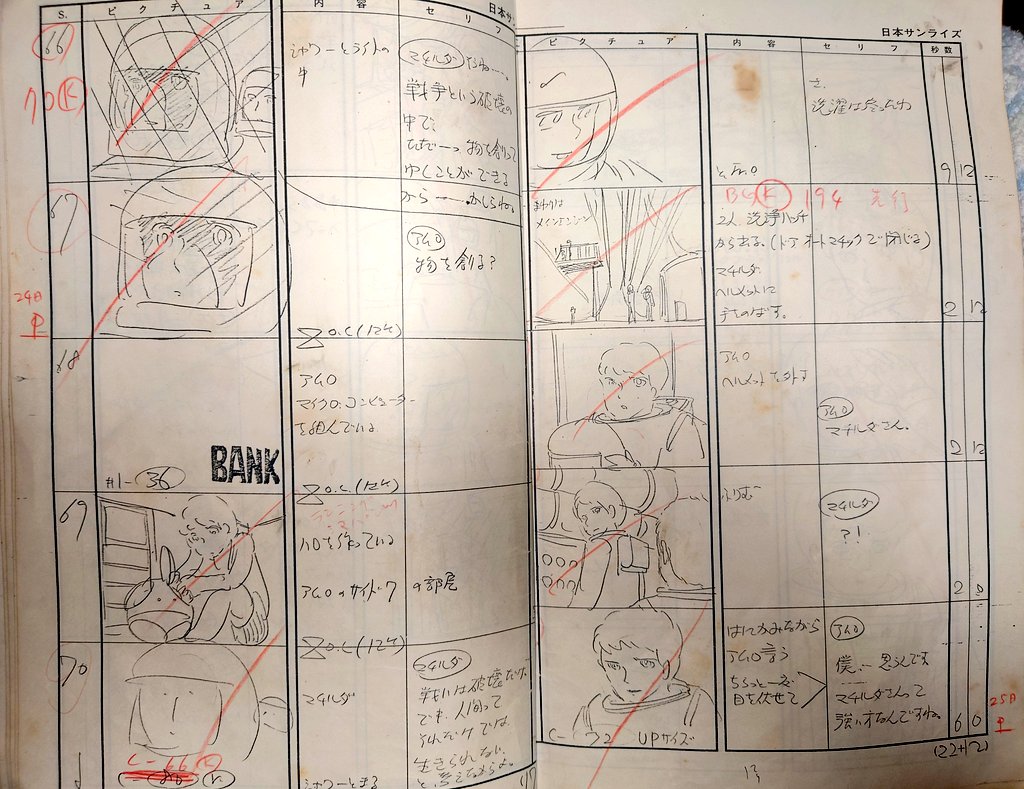 S.
ピクチュア
内容
セリフ
日本サン
66
70 K
シャワーとライトの
中
マチルダ
戦争という破壊の
中で、
ただ一つ物を創って
ゆくことができる
67
から……かしらね。
アムロ
物を創る？
24日
O.C(12K)
68
アムロ
マイクロ・コンピューター
を組んでいる
#1-36
BANK
O.L.(12K)
69
ハロを作っている
アムロのサイド7の部屋
O.L(12K)
70
マチルダ
マチルダ
戦いは破壊だけ
でも、人間って
それだけでは
生きられない
シャワーとまる
ピクチュア
内容
セリフ
秒数
日本サンライズ
さ、
洗濯は終ったわ
とアムロ
9 12
BG K 194 先行
2人 洗浄ハッチ
から出る。(ドア オートマチックで閉じる)
マチルダ
ヘルメットに
手をのばす。
2 12
アムロ
ヘルメットを外す
アムロ
マチルダさん。
2 12
ふりむく
マチルダ
?!
2 0
はにかみながら
アムロ言う
ちらっと一度
目を伏せて
アムロ
僕…思うんです
マチルダさんって
強い方なんですね。
6 0
25日
C-72 UPサイズ
(22+12)
13